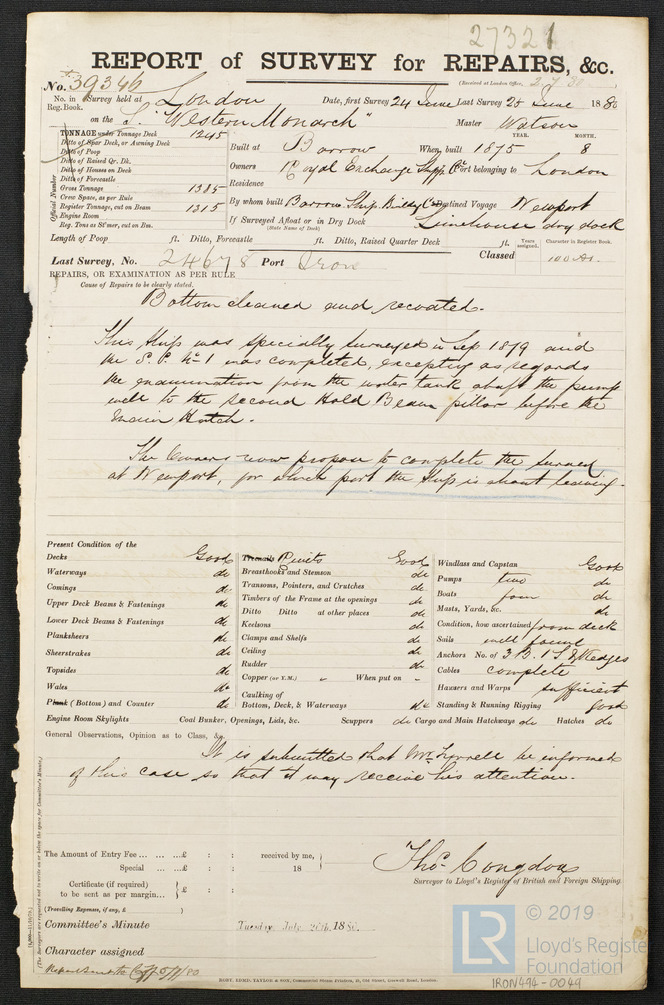 27321
REPORT of SURVEY for REPAIRS, &c.
(Received at London Office,
No. 39346
No. in Reg. Book.
Survey held at London
Date, first Survey 24 June Last Survey 28 June 1880
on the S. "Western Monarch"
Master Watson
TONNAGE under Tonnage Deck 1245
Ditto of Spar Deck, or Awning Deck
Ditto of Poop
Ditto of Raised Qr. Dk.
Ditto of Houses on Deck
Ditto of Forecastle
Gross Tonnage 1385
Crew Space, as per Rule
Register Tonnage, cut on Beam 1315
Engine Room
Reg. Tons as St'mer, cut on Bm.
Official Number
Built at Barrow When built 1875 YEAR. 8 MONTH.
Owners Royal Exchange Shipp Co Port belonging to London
Residence
By whom built Barrow Ship Buildg Co Destined Voyage Newport
If Surveyed Afloat or in Dry Dock Limehouse dry dock
(State Name of Dock)
Length of Poop ft. Ditto, Forecastle ft. Ditto, Raised Quarter Deck ft.
Years assigned. Character in Register Book.
Last Survey, No. 24678 Port Iron Classed 100 A1.
REPAIRS, OR EXAMINATION AS PER RULE
Cause of Repairs to be clearly stated.
Bottom cleaned and recoated.
This Ship was specially surveyed in Sep 1879 and
the S.S. No 1 was completed, excepting as regards
the examination from the water tank abaft the pump
well to the second Hold Beam pillar before the
Main Hatch.
The Owners now propose to complete the survey
at Newport, for which port the Ship is about leaving.
Present Condition of the
Decks Good
Waterways do
Comings do
Upper Deck Beams & Fastenings do
Lower Deck Beams & Fastenings do
Planksheers do
Sheerstrakes do
Topsides do
Wales do
Plank (Bottom) and Counter do
Engine Room Skylights Coal Bunker, Openings, Lids, &c. Scuppers do Cargo and Main Hatchways do Hatches do
Treenails Rivets Good
Breasthooks and Stemson do
Transoms, Pointers, and Crutches do
Timbers of the Frame at the openings do
Ditto Ditto at other places do
Keelsons do
Clamps and Shelfs do
Ceiling do
Rudder do
Copper (or Y.M.) " When put on -
Caulking of
Bottom, Deck, & Waterways do
Windlass and Capstan Good
Pumps two do
Boats four do
Masts, Yards, &c. do
Condition, how ascertained from deck
Sails well found
Anchors No. of 3 B. 1 S. & 2 Kedges
Cables complete
Hawsers and Warps sufficient
Standing & Running Rigging good
General Observations, Opinion as to Class, &c.
It is submitted that Mr. Tyrrell be informed
of this case so that it may receive his attention.
The Amount of Entry Fee ... ... ...£ : : received by me,
Special ... ...£ : : 18
Certificate (if required) to be sent as per margin... £ : :
(Travelling Expenses, if any, £ )
Thos Congdon
Surveyor to Lloyd's Register of British and Foreign Shipping.
Committee's Minute Tuesday July 1880.
Character assigned
(The Surveyors are requested not to write on or below the space for Committee's Minute.)
HORE, EDMD. TAYLOR & SON,
© 2019
LR
Lloyd's Register
Foundation
IRON494-0049